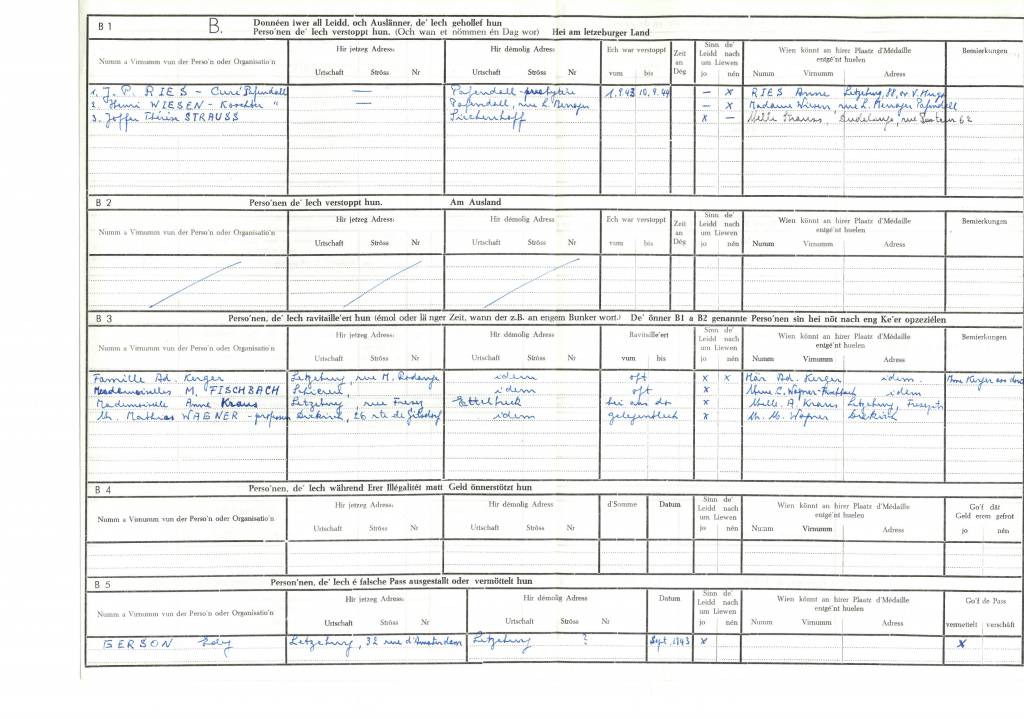 B 1 B. Donnéen iwer all Leidd, och Auslänner, de' Iech gehollef hun
Perso'nen de' Iech verstoppt hun. (Och wan et nömmen én Dag wor) Hei am letzeburger Land
Numm a Virnumm vun der Perso'n oder Organisatio'n Hir jetzeg Adress: Urtschaft Ströss Nr Hir démolig Adress: Urtschaft Ströss Nr Ech war verstoppt vum bis Zeit an Dég Sinn de' Leidd nach um Liewen jo nén Wien könnt an hirer Plaatz d'Médaille entgé'nt huelen Numm Virnumm Adress Bemierkungen
1. J. P. RIES - Curé Pafendall — Pafendall-presbytère 1.9.43 10.9.44 — x RIES Anne Letzeburg, 88, av V. Hugo
2. Henri WIESEN - Koschter " — Pafendall, rue L. Menager — x Madame Wiesen, rue L. Menager Pafendall
3. Joffer Thérèse STRAUSS x — Melle Strauss, Dudelange, rue 62
B 2 Perso'nen de' Iech verstoppt hun. Am Ausland
Numm a Virnumm vun der Perso'n oder Organisatio'n Hir jetzeg Adress: Urtschaft Ströss Nr Hir démolig Adress Urtschaft Ströss Nr Ech war verstoppt vum bis Zeit an Dég Sinn de' Leidd nach um Liewen jo nén Wien könnt an hirer Plaatz d'Médaille entgé'nt huelen Numm Virnumm Adress Bemierkungen
B 3 Perso'nen, de' Iech ravitaille'ert hun (émol oder länger Zeit, wann der z.B. an engem Bunker wort.) De' önner B1 a B2 genannte Perso'nen sin hei nöt nach eng Ke'er opzeziélen
Numm a Virnumm vun der Perso'n oder Organisatio'n Hir jetzeg Adress: Urtschaft Ströss Nr Hir démolig Adress: Urtschaft Ströss Nr Ravitaille'ert vum bis Sinn de' Leidd nach um Liewen jo nén Wien könnt an hirer Plaatz d'Médaille entgé'nt huelen Numm Virnumm Adress Bemierkungen
Famille Ad. Kerger Letzeburg, rue M. Rodange idem oft x x Här Ad. Kerger idem. Mme Kerger
Mesdemoiselles M. FISCHBACH idem oft x Mme L. Wagner-Fischbach idem
Mademoiselle Anne Kraus Letzeburg, rue Ettelbreck hei an do x Melle. A. Kraus Letzeburg,
M. Mathias WAGNER - professeur Diekirch, 26 rte de Gilsdorf idem gelegentlech x M. M. Wagner Diekirch
B 4 Perso'nen, de' Iech während Erer Illégalitét matt Geld önnerstötzt hun
Numm a Virnumm vun der Perso'n oder Organisatio'n Hir jetzeg Adress: Urtschaft Ströss Nr Hir démolig Adress Urtschaft Ströss Nr d'Somme Datum Sinn de' Leidd nach um Liewen jo nén Wien könnt an hirer Plaatz d'Médaille entgé'nt huelen Numm Virnumm Adress Go'f dät Geld erem gefrot jo nén
B 5 Person'nen, de' Iech é falsche Pass ausgestallt oder vermöttelt hun
Numm a Virnumm vun der Perso'n oder Organisatio'n Hir jetzeg Adress: Urtschaft Ströss Nr Hir démolig Adress Urtschaft Ströss Nr Datum Sinn de' Leidd nach um Liewen jo nén Wien könnt an hirer Plaatz d'Médaille entgé'nt huelen Numm Virnumm Adress Go'f de Pass vermettelt verschäft
GERSON Edy Letzeburg, 32 rue d'Amsterdam Letzeburg ? Sept. 1943 x x